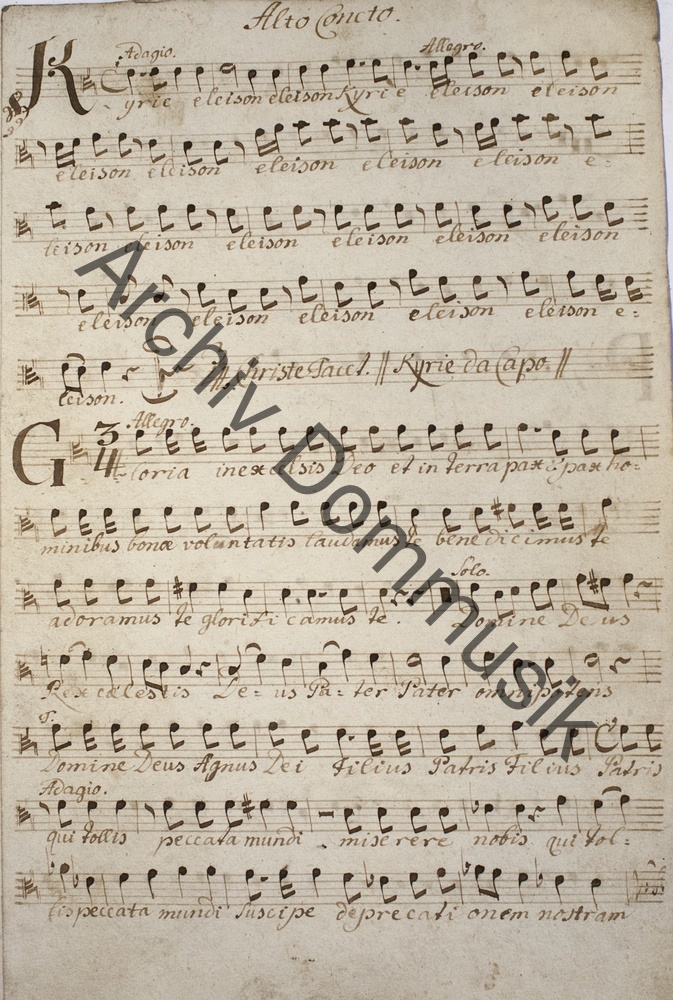 Alto Concto.
Adagio. Allegro.
Kyrie eleison eleison Kyrie eleison eleison
eleison eleison eleison eleison eleison e:
leison eleison eleison eleison eleison eleison
eleison eleison eleison eleison eleison e:
leison. Christe Tacet. || Kyrie da Capo. ||
Allegro.
3
4
Gloria in excelsis Deo et in terra pax pax ho:
minibus bonæ voluntatis laudamus te benedicimus te
Solo.
adoramus te glorificamus te. Domine Deus
Rex cælestis De: us Pa: ter Pater omnipotens
T.
Domine Deus Agnus Dei Filius Patris Filius Patris
Adagio.
qui tollis peccata mundi. miserere nobis qui tol:
lis peccata mundi suscipe deprecationem nostram
Archiv Dommusik